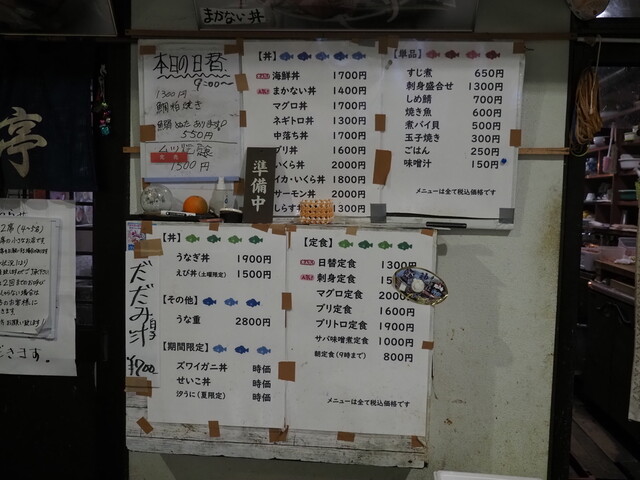 まかない丼
本日の日替
9:00〜
1300円
鯛粕焼き
550円
1500円
【丼】
海鮮丼 1700円
まかない丼 1400円
マグロ丼 1700円
ネギトロ丼 1300円
中落ち丼 1700円
ブリ丼 1600円
いくら丼 2000円
イカ・いくら丼 1800円
サーモン丼 2000円
しらす 1300円
準備中
【単品】
すじ煮 650円
刺身盛合せ 1300円
しめ鯖 700円
焼き魚 600円
煮バイ貝 500円
玉子焼き 300円
ごはん 250円
味噌汁 150円
メニューは全て税込価格です
亭
【丼】
うなぎ丼 1900円
えび丼(土曜限定) 1500円
【その他】
うな重 2800円
【期間限定】
ズワイガニ丼 時価
せいこ丼 時価
汐うに(夏限定) 時価
【定食】
日替定食 1300
刺身定食 15
マグロ定食 2000
ブリ定食 1600円
ブリトロ定食 1900円
サバ味噌煮定食 1000円
朝定食(9時まで) 800円
メニューは全て税込価格です